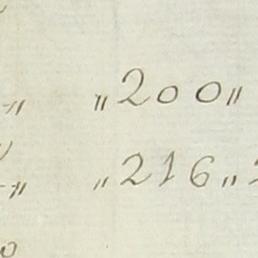 -„ „200„
-„ „216„